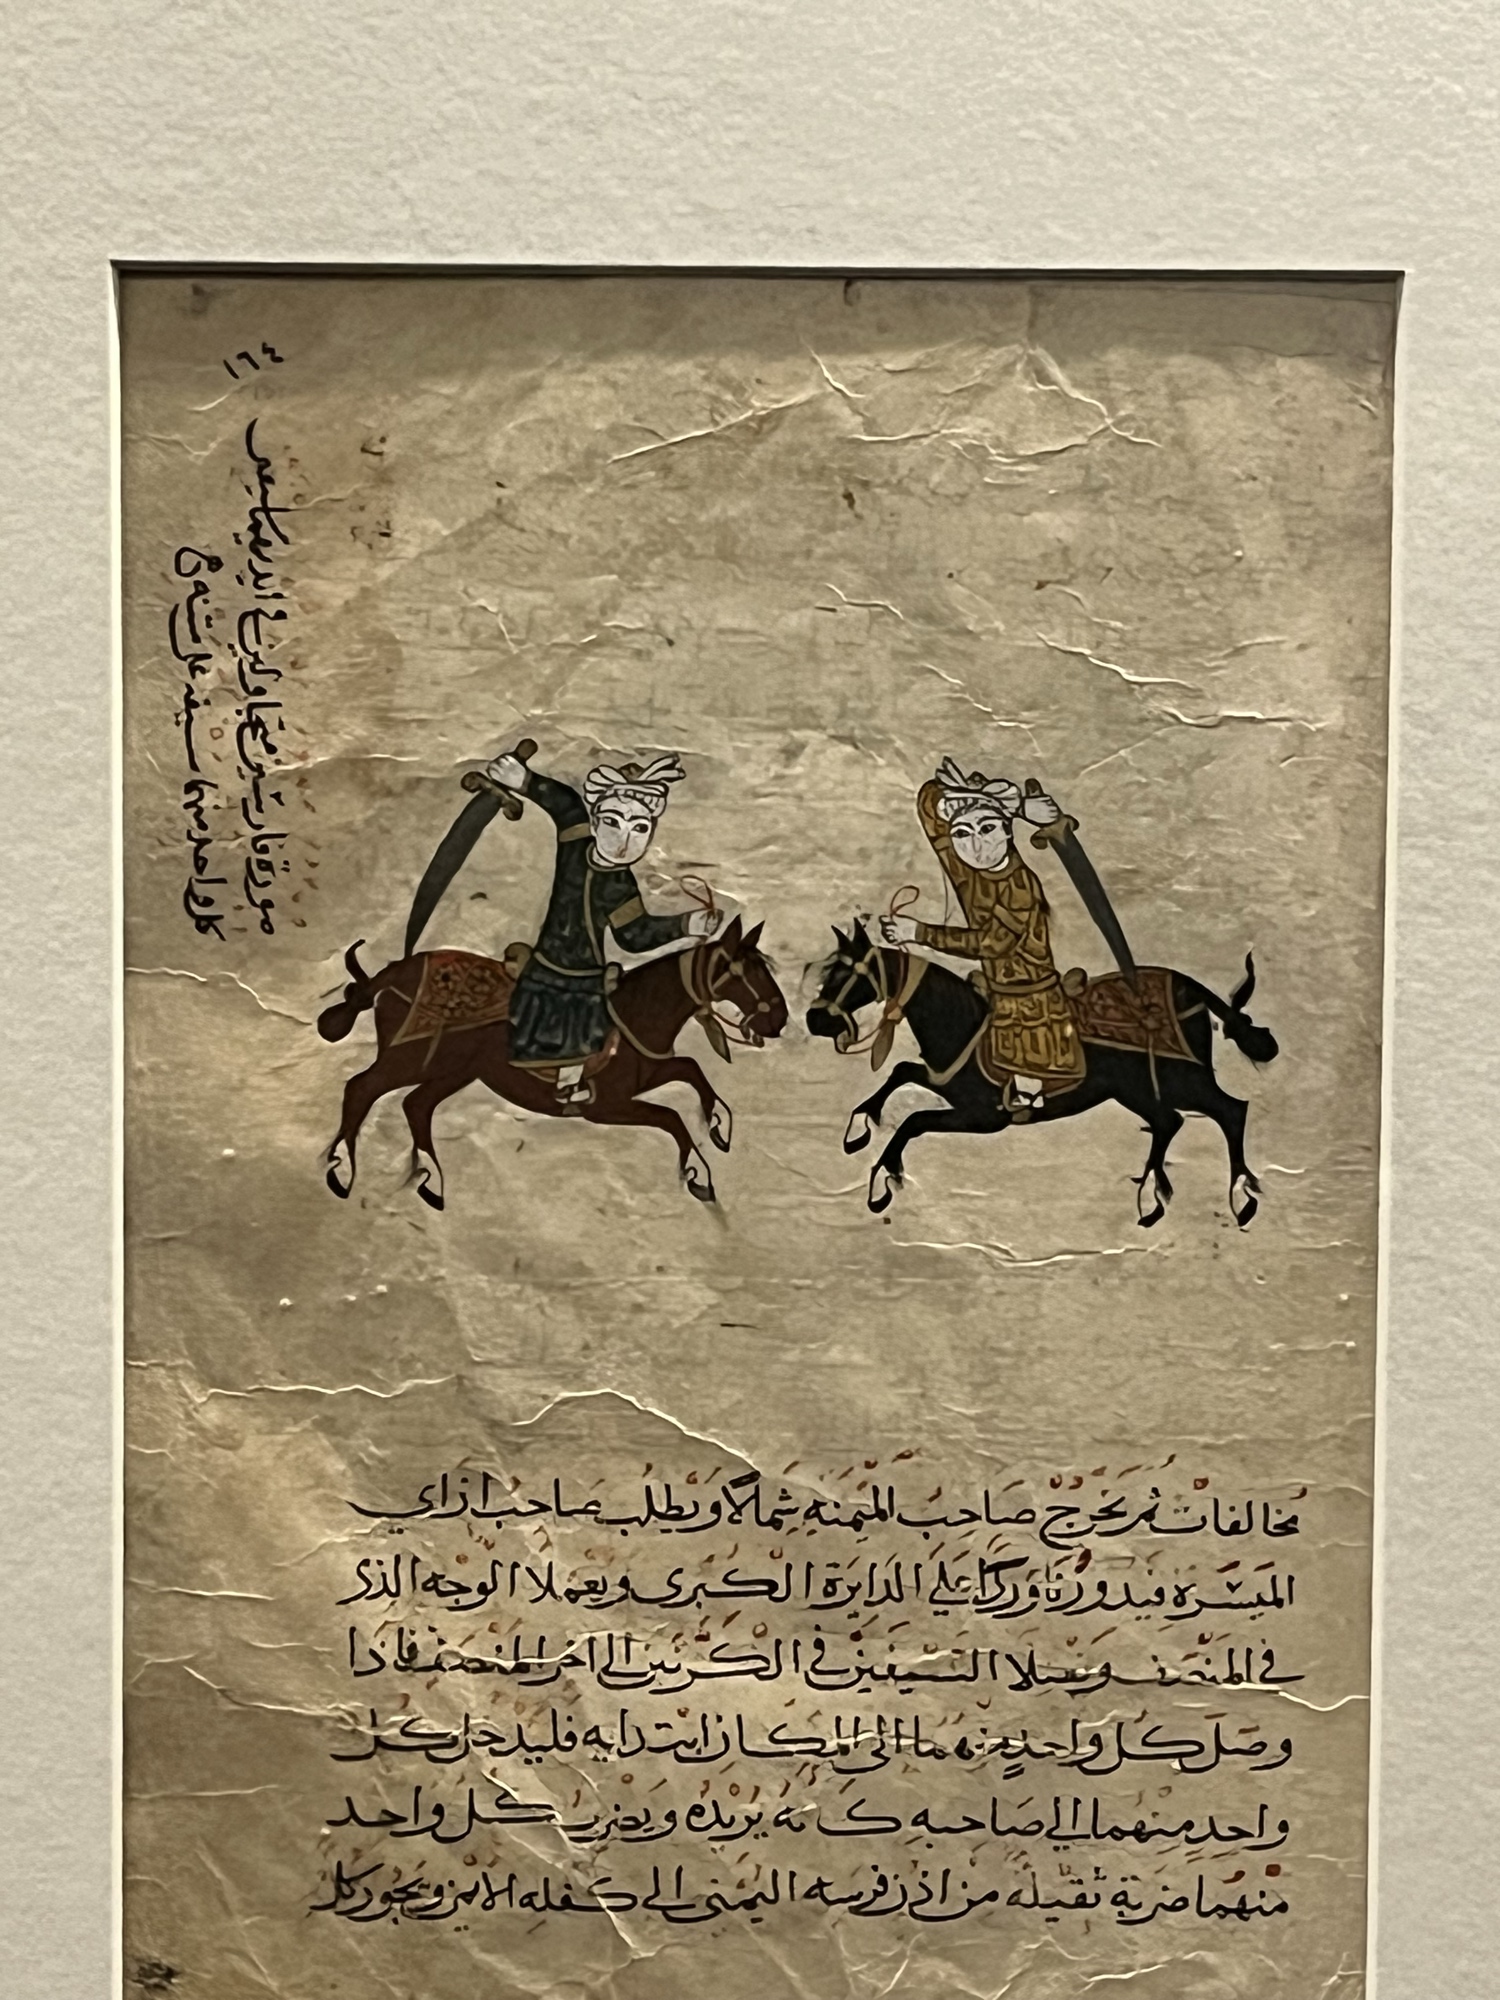 ١٦٤
صورة فارسين متجاولين في ايديهما سيفين
كل واحد منهما سيفه على متنه
مخالفات ثم يخرج صاحب الميمنه شمالاً ويطلب صاحب ازاي
الميسرة فيدورا دوركا على الدايرة الكبرى ويعملا الوجه الذى
في المنصف وينسلا السيفين في الكرتين الى اخر المنصف فاذا
وصل كل واحد منهما الى المكان ابتدايه فليدخل كل
واحد منهما الي صاحبه كانه يريده ويضرب كل واحد
منهما ضربة ثقيله من اذن فرسه اليمنى الى كفله الايمن ويجوز كل